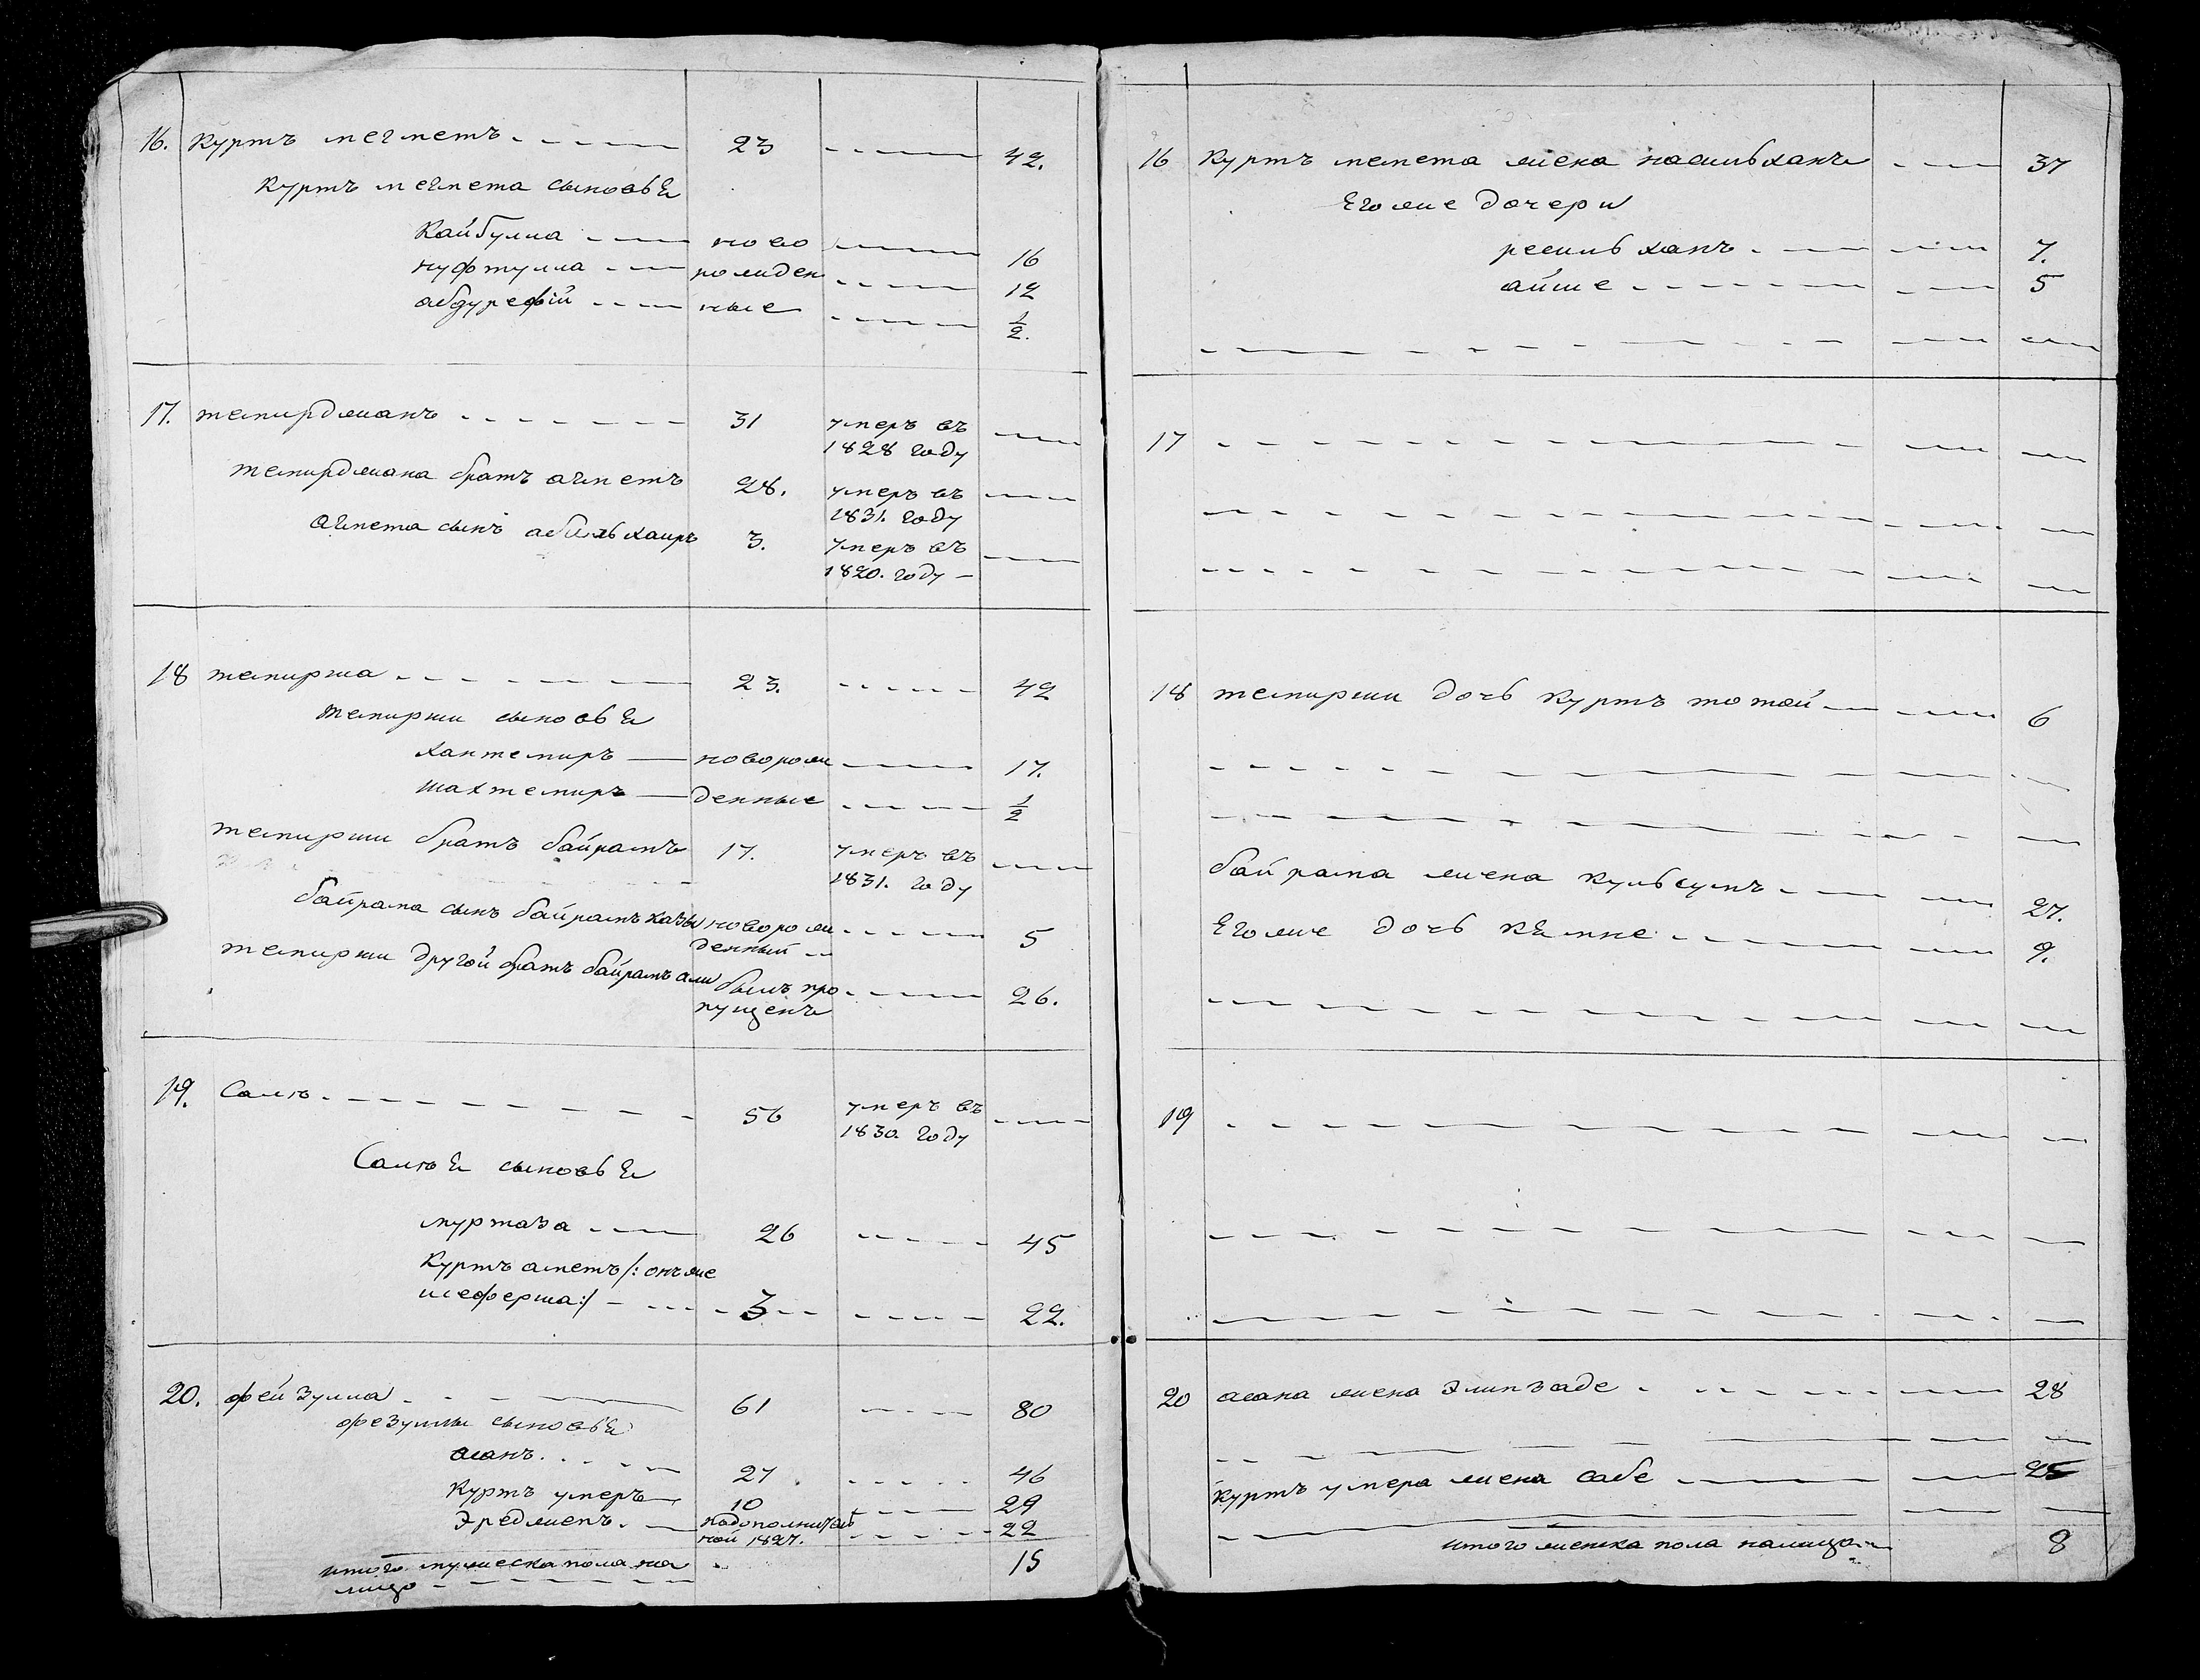 16. Куртъ мегметъ 23 42.
Куртъ мегмета сыновья
Кайбулла ново 16
нуфтулла рожден 12
абдурефій ные 1/2.
17. темирджанъ 31 умеръ въ
1828 году
темирджана братъ агметъ 28. умеръ въ
1831. году
агмета сынъ абильхаиръ 3. умеръ въ
1820. году
18 темирша 23. 42
темирши сыновья
хантемиръ новорож 17.
шахтемиръ денные 1/2
темирши братъ байрамъ 17. умеръ въ
1831. году
байрама сынъ байрамъ казы новорож 5
денный
темирши другой братъ байрамъ али былъ про 26.
пущенъ
19. Салю 56 умеръ въ
1830. году
Салюя сыновья
муртаза 26 45
Куртъ аметъ /: онъ же
шеферша :/ 3 22.
20. фейзулла 61 80
фезуллы сыновья
асанъ 27 46
Куртъ умеръ 10 29
Эреджепъ подополнитель
ной 1827. 22
итого мужеска пола на 15
лицо
16 Куртъ мемета жена насильханъ 37
Его же дочери
ресильханъ 7.
айше 5
17
18 темирши дочь Куртъ тотай 6
байрама жена Кульсумъ 27.
Его же дочь Кямне 9.
19
20 асана жена Элипзаде 28
Куртъ умера жена сабе 25
итого женска пола налицо 8